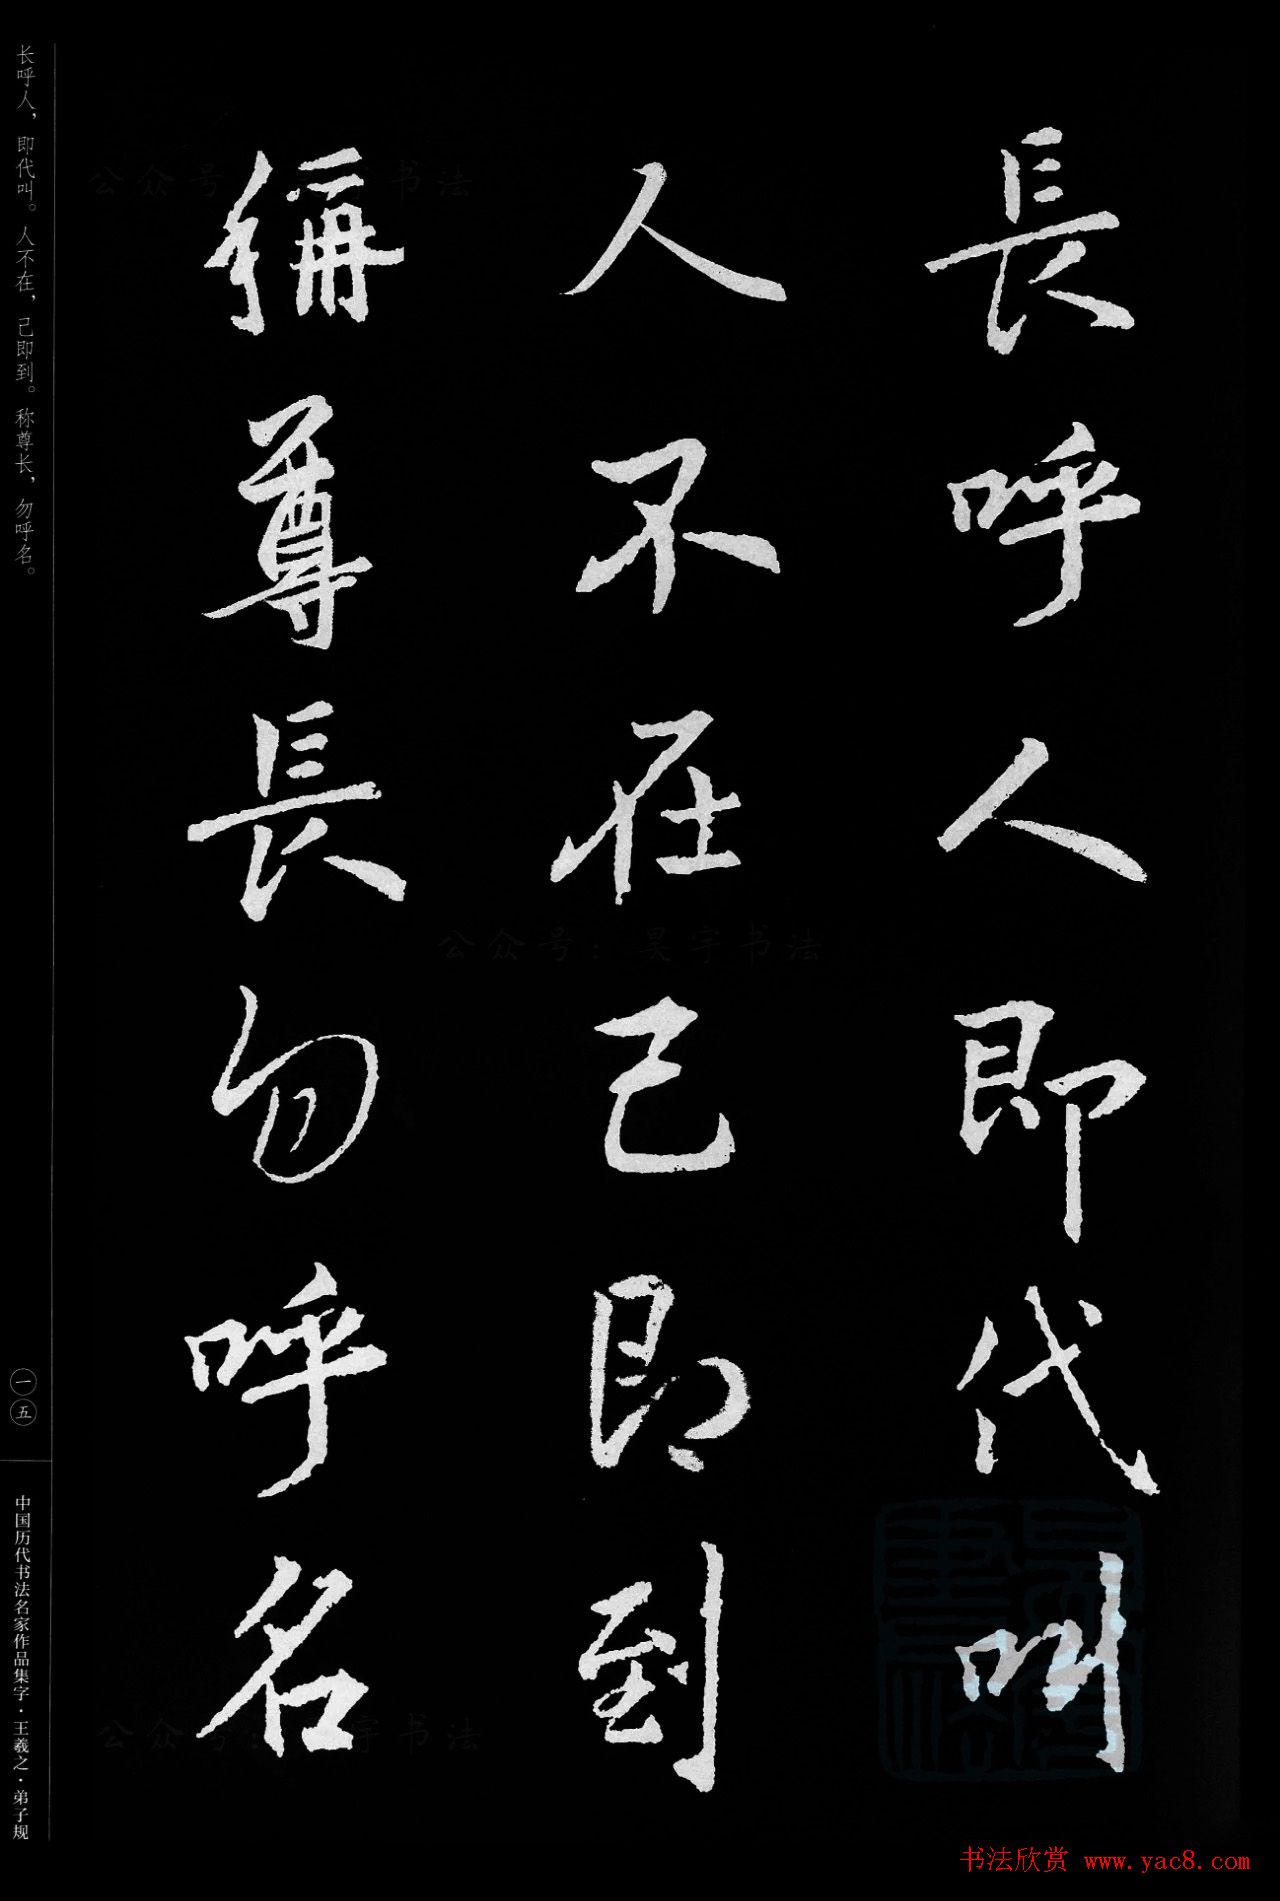 長呼人即代叫
人不在己即到
稱尊長勿呼名
长呼人，即代叫。人不在，己即到。称尊长，勿呼名。
一五
中国历代书法名家作品集字·王羲之·弟子规
公众号：昊宇书法
书法欣赏 www.yac8.com